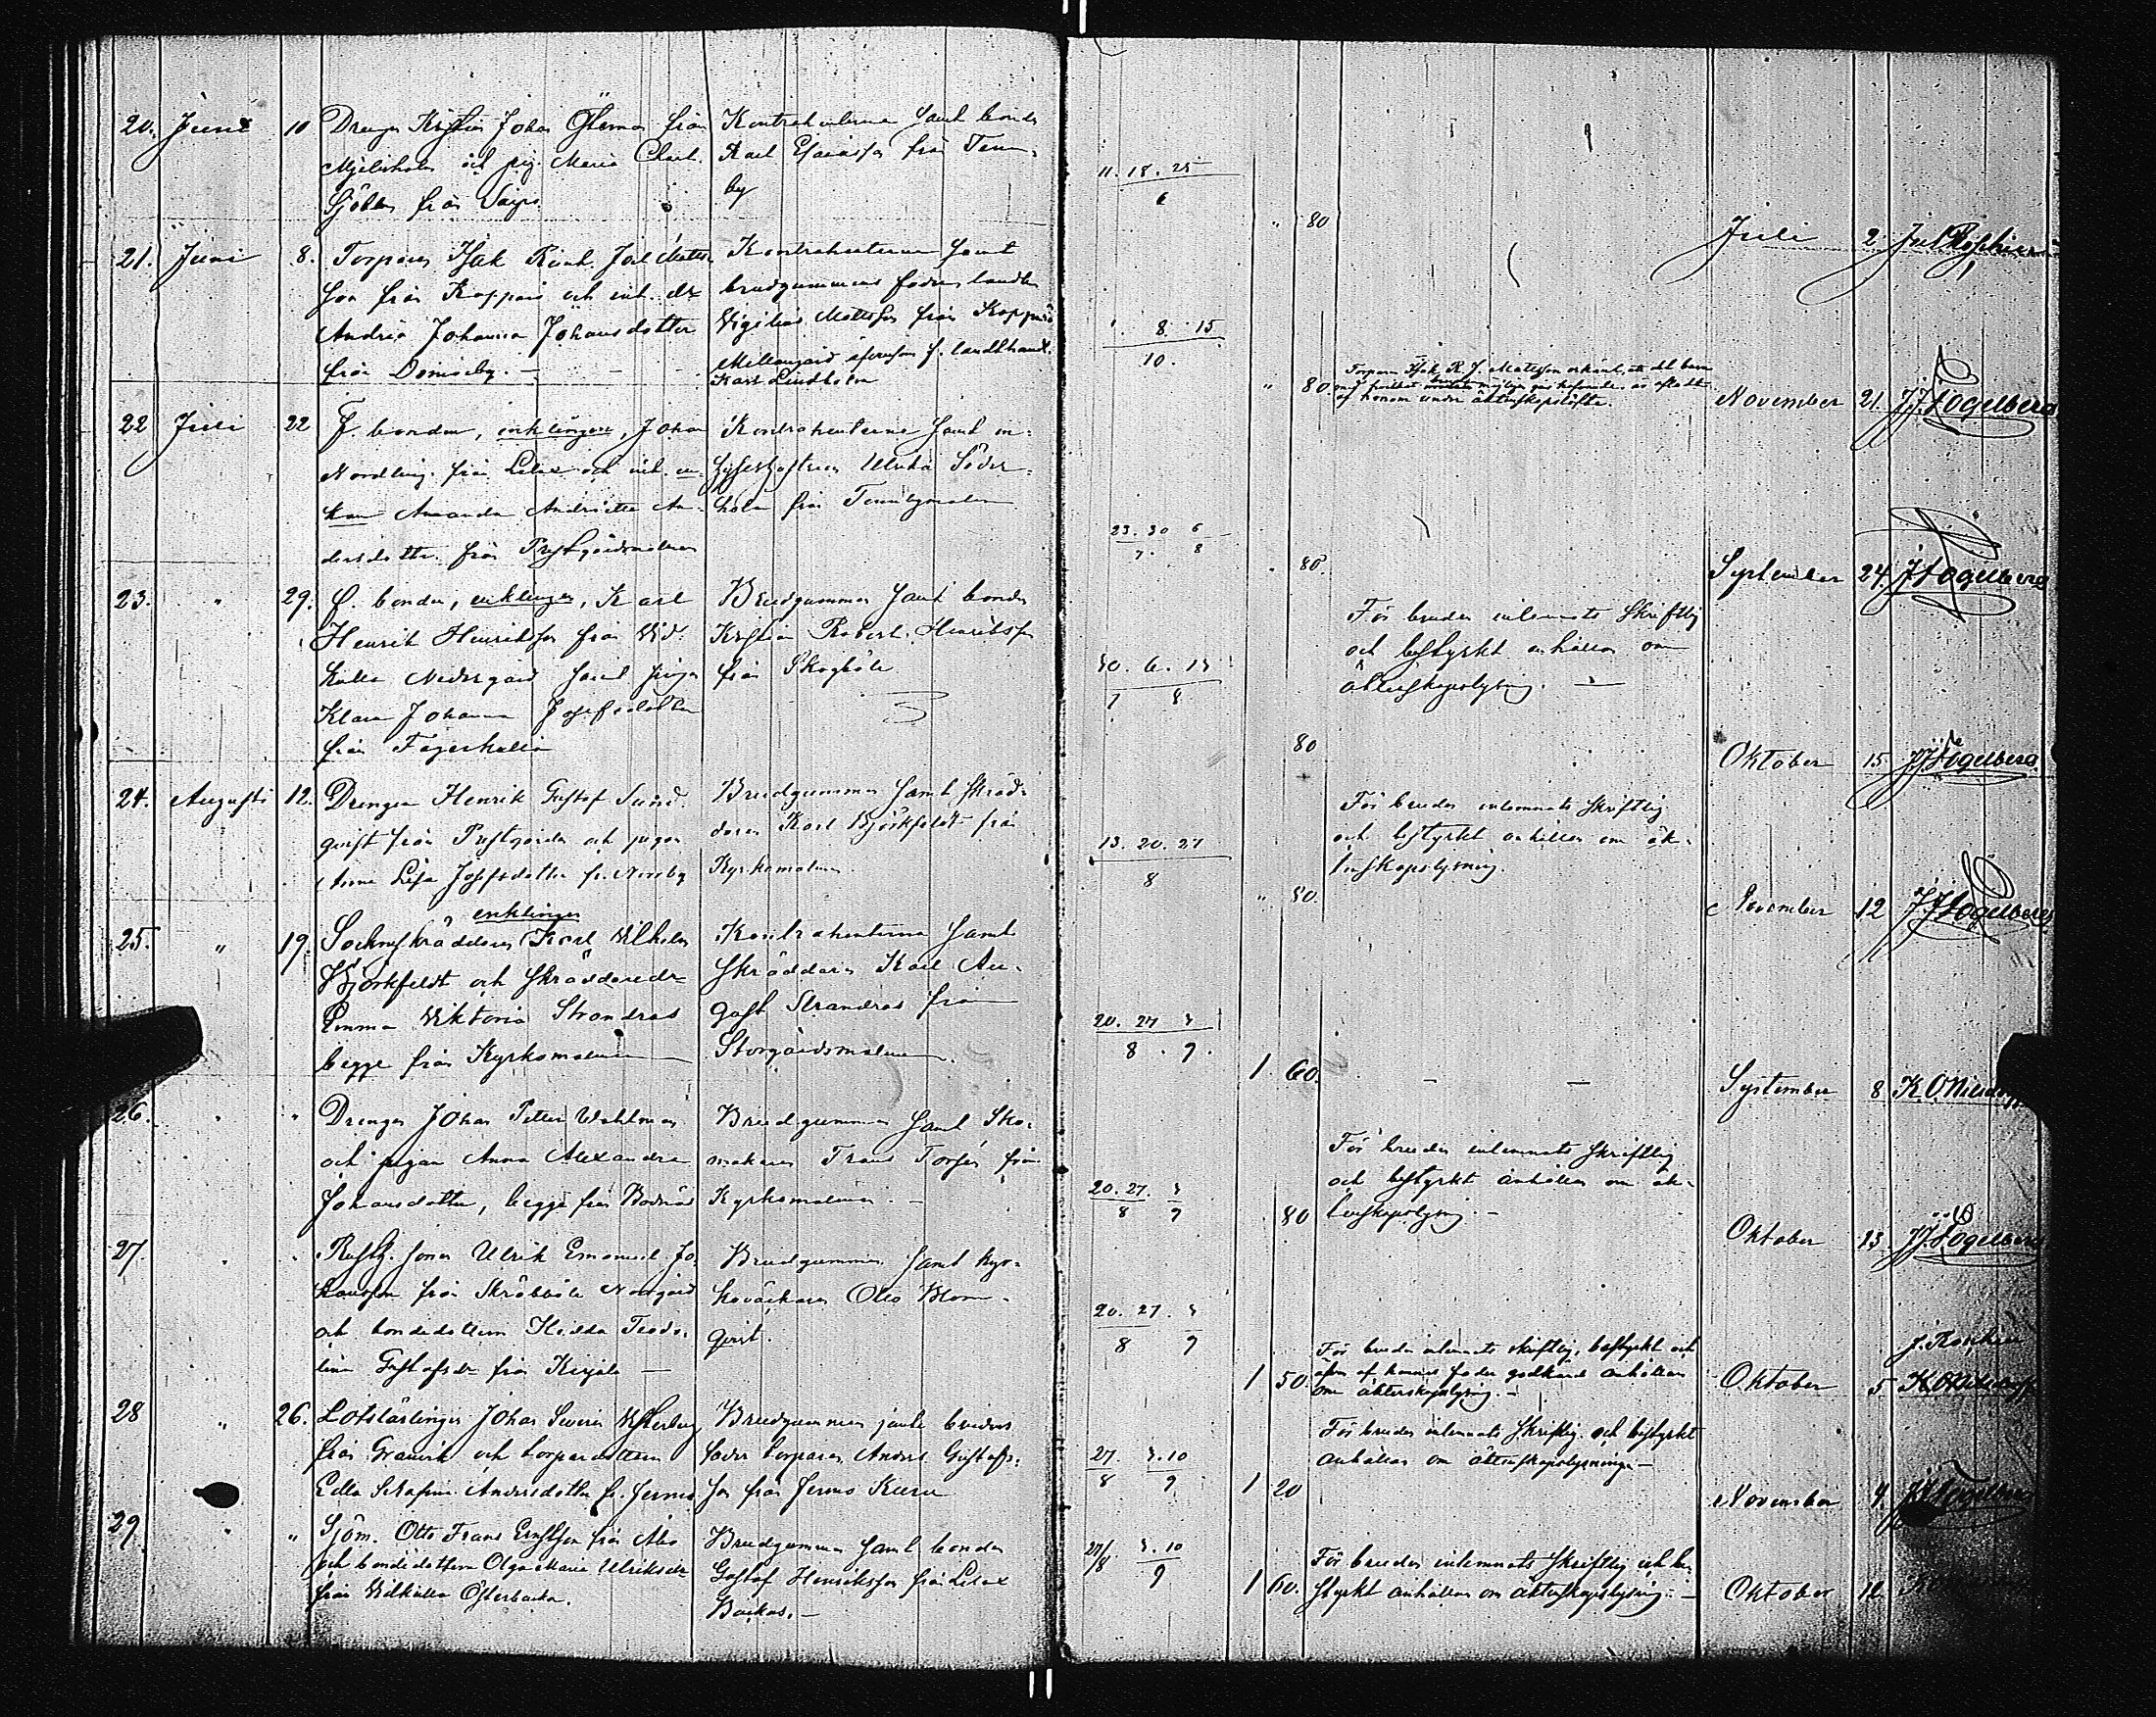 20. Juni 10 Drengen Johan Österman från
och pig. Maria Charl.
från
Kontrahenterna samt bonden
Karl Esaiasson från Tenn-
by
11. 18. 25
6
" 80
Juli 2
21. Juni 8. Torparen Isak Joel Matts-
son från Koppais och inh. dr
Andrea Johanna Johansdotter
från Domsby. —
Kontrahenterna samt
brudgummens fader landtb.
Mattsson från
Mellangård äfvensom f. landthandl.
Karl Lindholm
1. 8. 15
10.
" 80.
Torparen Isak R. J. Mattsson erkänt, att det barn
af honom under äktenskapslöfte.
November 21. J.J. Fogelberg
22 Juli 22 F. bonden, enklingen, Johan
Nordling från Lelax och inh. en-
kan Amanda Andrietta An-
dersdotter från Prestgårdsmalmen
Kontrahenterna samt in-
hyseshustrun Ulrika Söder-
holm från Tennbymalmen
23. 30 6
7. 8
" 80.
September 24 J. Fogelberg
23. " 29. F. bonden, enklingen, Karl
Henrik Henriksson från Vid-
kulla Nedergård samt pigan
Klara Johanna Josefsdotter
från Fagerkulla
Brudgummen samt bonden
Kristian Robert Henriksson
från Skogböle
30. 6. 13
7 8
80
För bruden inlemnats skriftlig
och bestyrkt anhållan om
äktenskapslysning. —
Oktober 15 J.J. Fogelberg
24. Augusti 12. Drengen Henrik Gustaf Sund-
qvist från Prestgården och pigan
Anna Lisa Josefsdotter fr. Norrby
Brudgummen samt skräd-
daren Karl Björkfeldt från
Kyrkomalmen.
13. 20. 27
8
" 80.
För bruden inlemnats skriftlig
och bestyrkt anhållan om äk-
tenskapslysning.
November 12 J.J. Fogelberg
enklingen
25. " 19. Sockneskräddaren Karl Vilhelm
Björkfeldt och skräddaredr
Emma Viktoria Strandros
begge från Kyrkomalmen
Kontrahenterna samt
skräddaren Karl Au-
gust Strandros från
Storgårdsmalmen.
20. 27 3
8. 9.
1 60.
September 8
26. " " Drengen Johan Petter Wahlman
och pigan Anna Alexandra
Johansdotter, begge från Bodnäs
Brudgummen samt sko-
makaren Frans Torsén från
Kyrkomalmen. —
20. 27. 3
8 9
80
För bruden inlemnats skriftlig
och bestyrkt anhållan om äk-
tenskapslysning. —
Oktober 13 J.J. Fogelberg
27. " " sonen Ulrik Emanuel Jo-
hansson från Skräbböle Norrgård
och bondedottern Hilda Teodo-
lina Gustafsdr från Kirjala —
Brudgummen samt kyr-
koväktaren Otto Blom-
qvist.
20. 27. 3
8 9
1 50
För bruden inlemnats skriftlig, bestyrkt och
äfven af hennes fader godkänd anhållan
om äktenskapslysning. —
Oktober 5
28 " 26. Lotslärlingen Johan Severin Vesterberg
från Granvik och torparedottern
Edla Serafina Andersdotter fr. Jermo
Brudgummen jemte brudens
fader torparen Anders Gustafs-
son från Jermo Kuru
27. 3. 10
8 9
1 20
För bruden inlemnats skriftlig och bestyrkt
anhållan om äktenskapslysning. —
November 4. J.J. Fogelberg
29. " " Sjöm. Otto Frans Ernstsson från Åbo
och bondedottern Olga Maria Ulriksdr
från Vidkulla Österbacka.
Brudgummen samt bonden
Gustaf Henriksson från Lelax
Backas. —
27/8 3. 10
9
1 60.
För bruden inlemnats skriftlig och be-
styrkt anhållan om äktenskapslysning. —
Oktober